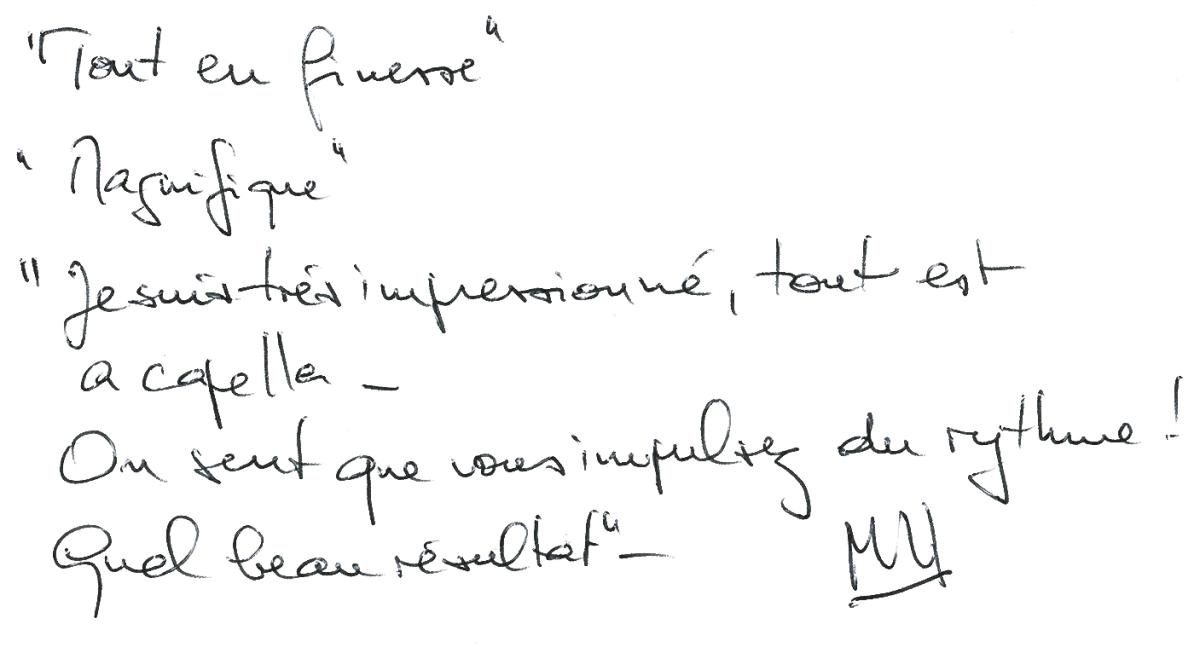 "Tout en finesse"
"Magnifique"
"Je suis très impressionné, tout est
a capella -
On sent que vous impulsez du rythme !
Quel beau résultat" -